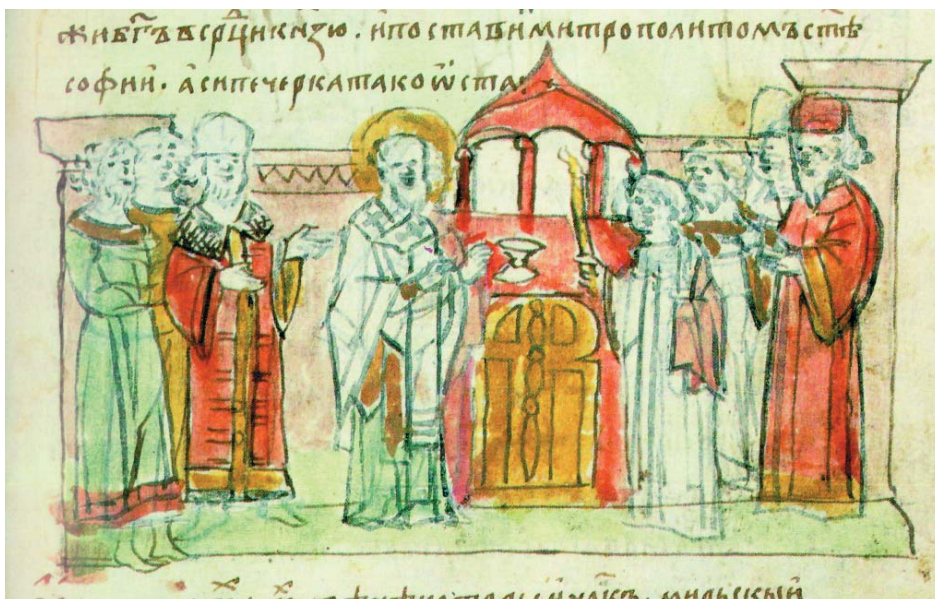 жи бг҃ъ в срⷣци кнꙗзю . и постави митрополитомъ ст҃ѣ
софии . а си печерка тако ѡста :